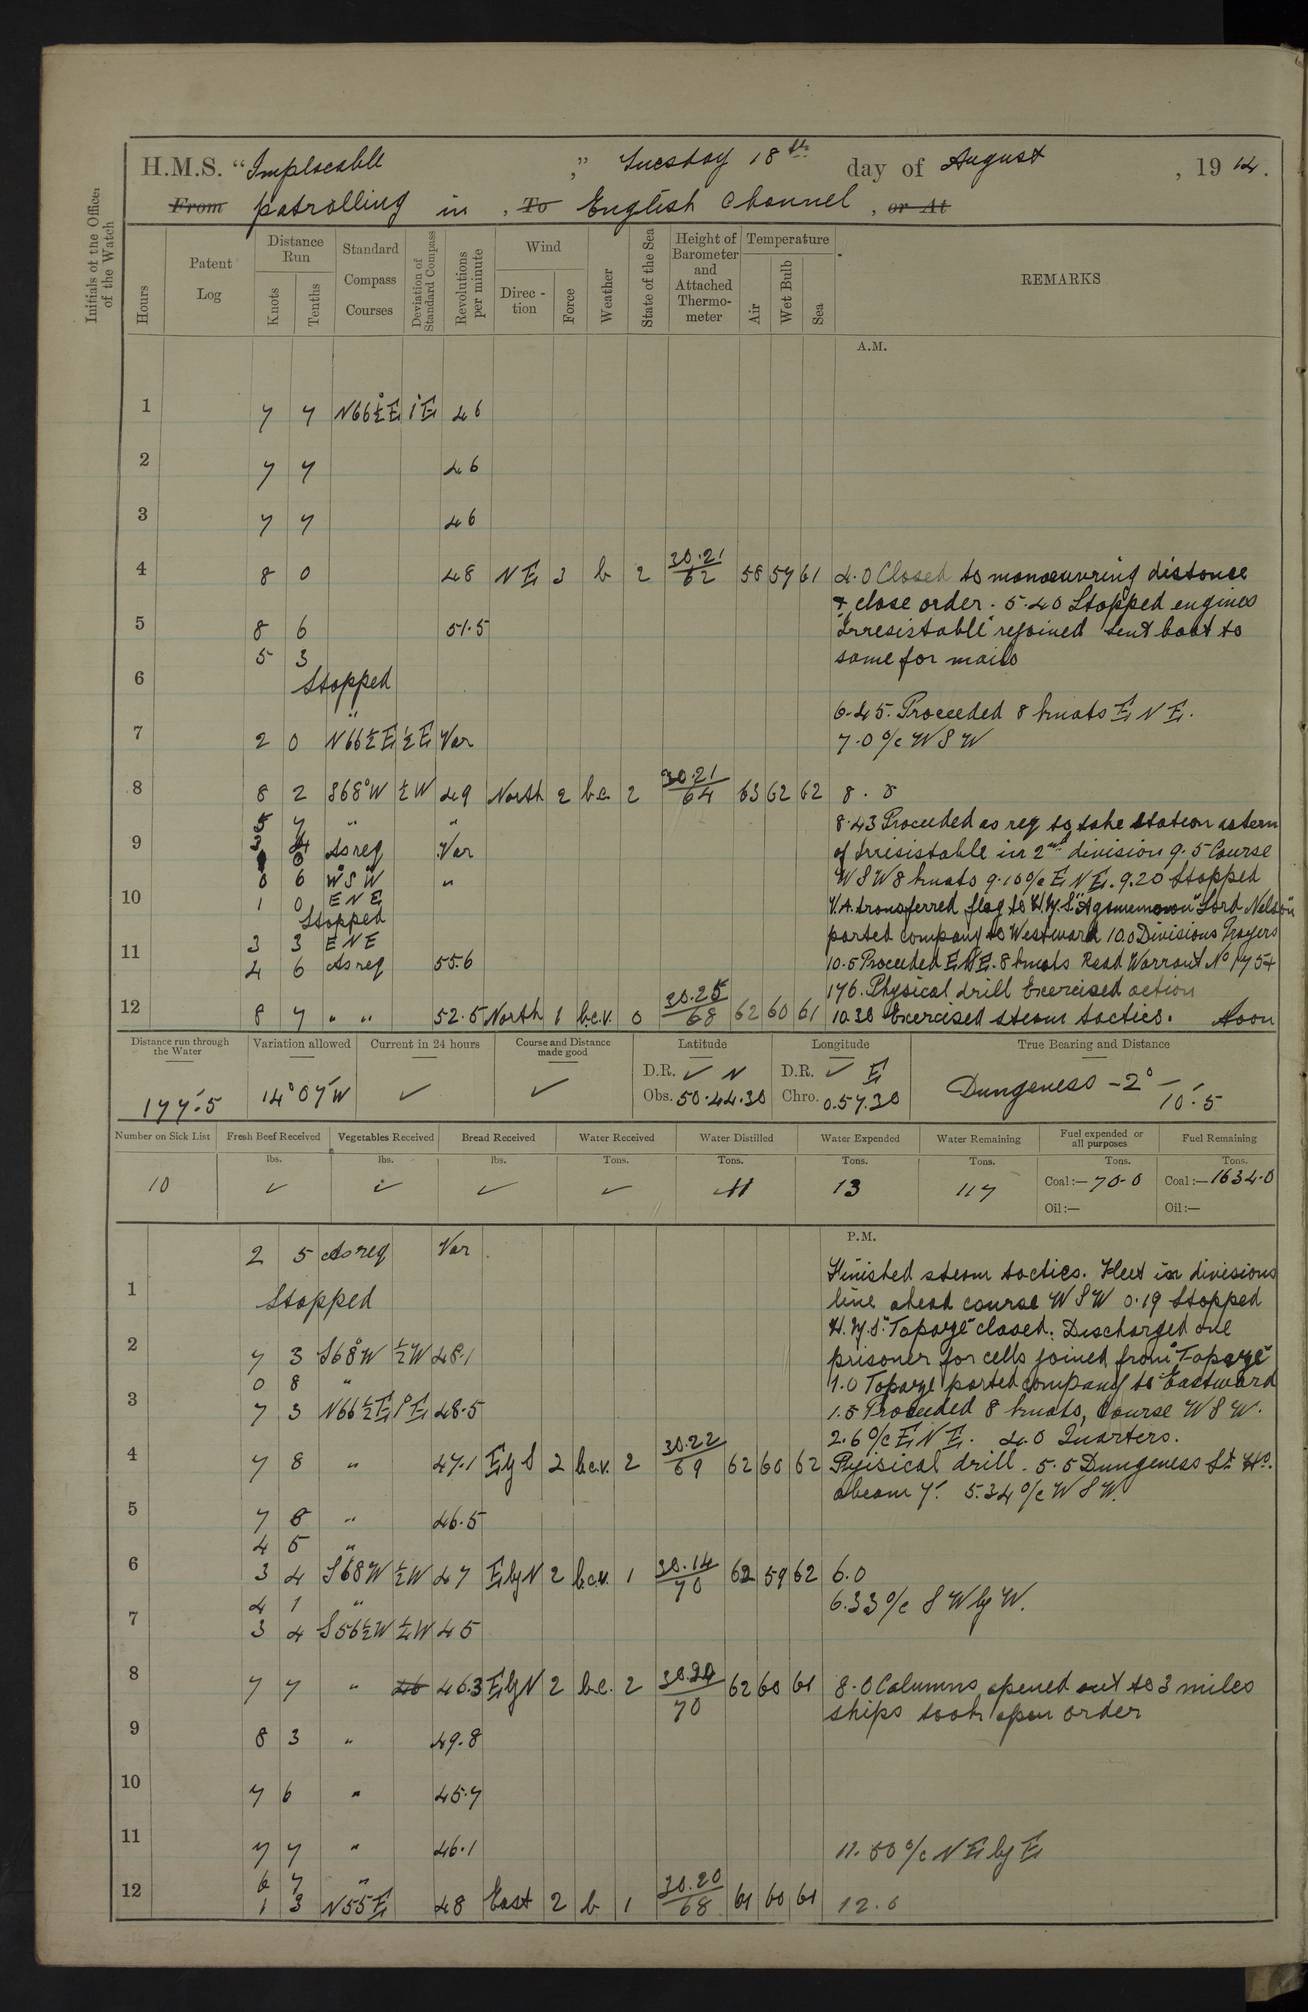 H.M.S. "Implacable," Tuesday 18th day of August, 1914.
From patrolling in, To English Channel, or At
Initials of the Officer of the Watch
Hours
Patent Log
Distance Run
Knots
Tenths
Standard Compass Courses
Deviation of Standard Compass
Revolutions per minute
Wind
Direc-tion
Force
Weather
State of the Sea
Height of Barometer and Attached Thermo-meter
Temperature
Air
Wet Bulb
Sea
REMARKS
A.M.
1 7 7 N66½°E 1°E 46
2 7 7 46
3 7 7 46
4 8 0 48 NE 3 b 2 30.21/62 58 57 61 4.0 Closed to manoeuvring distance
& close order. 5.40 Stopped engines
5 8 6 51.5 "Irresistable" rejoined sent boat to
5 3 same for mails
6 Stopped
" 6.45. Proceeded 8 knots E N E.
7 2 0 N66½E ½E Var 7.0 a/c W S W
8 8 2 S68°W ½W 49 North 2 b.c. 2 30.21/64 63 62 62 8.0
5 7 " " 8.43 Proceeded as req to take station astern
9 3 4 As req Var of Irresistable in 2nd division 9.5 Course
0 6 WSW " W S W 8 knots 9.10 a/c E N E. 9.20 Stopped
10 1 0 ENE V.A. transferred flag to H.M.S. "Agamemnon" "Lord Nelson"
Stopped
3 3 ENE parted company to Westward 10.0 Divisions Prayers
11 4 6 As req 55.6 10.5 Proceeded E N E. 8 knots Read Warrant No 175 &
176. Physical drill Exercised action
12 8 7 " " 52.5 North 1 b.c.v. 0 30.25/68 62 60 61 10.30 Exercised steam tactics. Noon
Distance run through the Water
Variation allowed
Current in 24 hours
Course and Distance made good
Latitude
Longitude
True Bearing and Distance
177.5 14° 07' W ✓ ✓ D.R. ✓ N D.R. ✓ E Dungeness – 2° – 10'.5
Obs. 50.44.30 Chro. 0.57.30
Number on Sick List
Fresh Beef Received
Vegetables Received
Bread Received
Water Received
Water Distilled
Water Expended
Water Remaining
Fuel expended or all purposes
Fuel Remaining
lbs. lbs. lbs. Tons. Tons. Tons. Tons. Tons. Tons.
10 ✓ ✓ ✓ ✓ 11 13 117 Coal:— 70.0 Coal:— 1634.0
Oil:— Oil:—
P.M.
2 5 As req Var
Finished steam tactics. Fleet in divisions
1 Stopped line ahead course W S W 0.19 Stopped
H.M.S. "Topaze" closed. Discharged one
2 7 3 S68°W ½W 48.1 prisoner for cells joined from "Topaze"
0 8 " 1.0 Topaze parted company to Eastward
3 7 3 N66½E 1°E 48.5 1.5 Proceeded 8 knots, Course W S W.
2.6 a/c E N E. 4.0 Quarters.
4 7 8 " 47.1 E by S 2 b.c.v. 2 30.22/69 62 60 62 Phyisical drill. 5.5 Dungeness Lt Ho.
abeam 7'. 5.34 a/c W S W.
5 7 8 " 46.5
4 5 "
6 3 4 S68W ½W 47 E by N 2 b.c.v. 1 30.14/70 62 59 62 6.0
4 1 " 6.33 a/c S W by W.
7 3 4 S56½W ½W 45
8 7 7 " 46 46.3 E by N 2 b.c. 2 30.20/70 62 60 61 8.0 Columns opened out to 3 miles
ships took open order
9 8 3 " 49.8
10 7 6 " 45.7
11 7 7 " 46.1 11.50 a/c N E by E
6 7 "
12 1 3 N55E 48 East 2 b 1 30.20/68 61 60 61 12.0